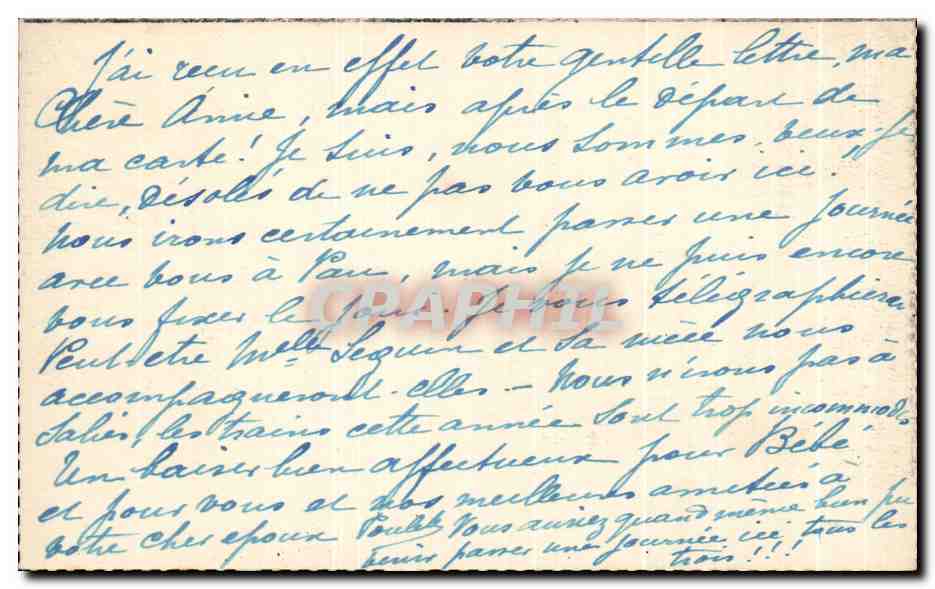 J'ai reçu en effet votre gentille lettre, ma
Chère Annie, mais après le départ de
ma carte! Je suis, nous sommes, veux-je
dire, désolés de ne pas vous avoir ici.
Nous irons certainement passer une journée
avec vous à Pau, mais je ne puis encore
vous fixer le jour. Je vous télégraphierai
Peut-être Melle Seguin et sa nièce nous
accompagneront-elles - Nous n'irons pas à
Salies, les trains cette année sont trop incommodes
Un baiser bien affectueux pour Bébé
et pour vous et nos meilleures amitiés à
votre cher époux
Vous auriez quand même bien pu
venir passer une journée ici tous les
trois!!!
CPAPHIL